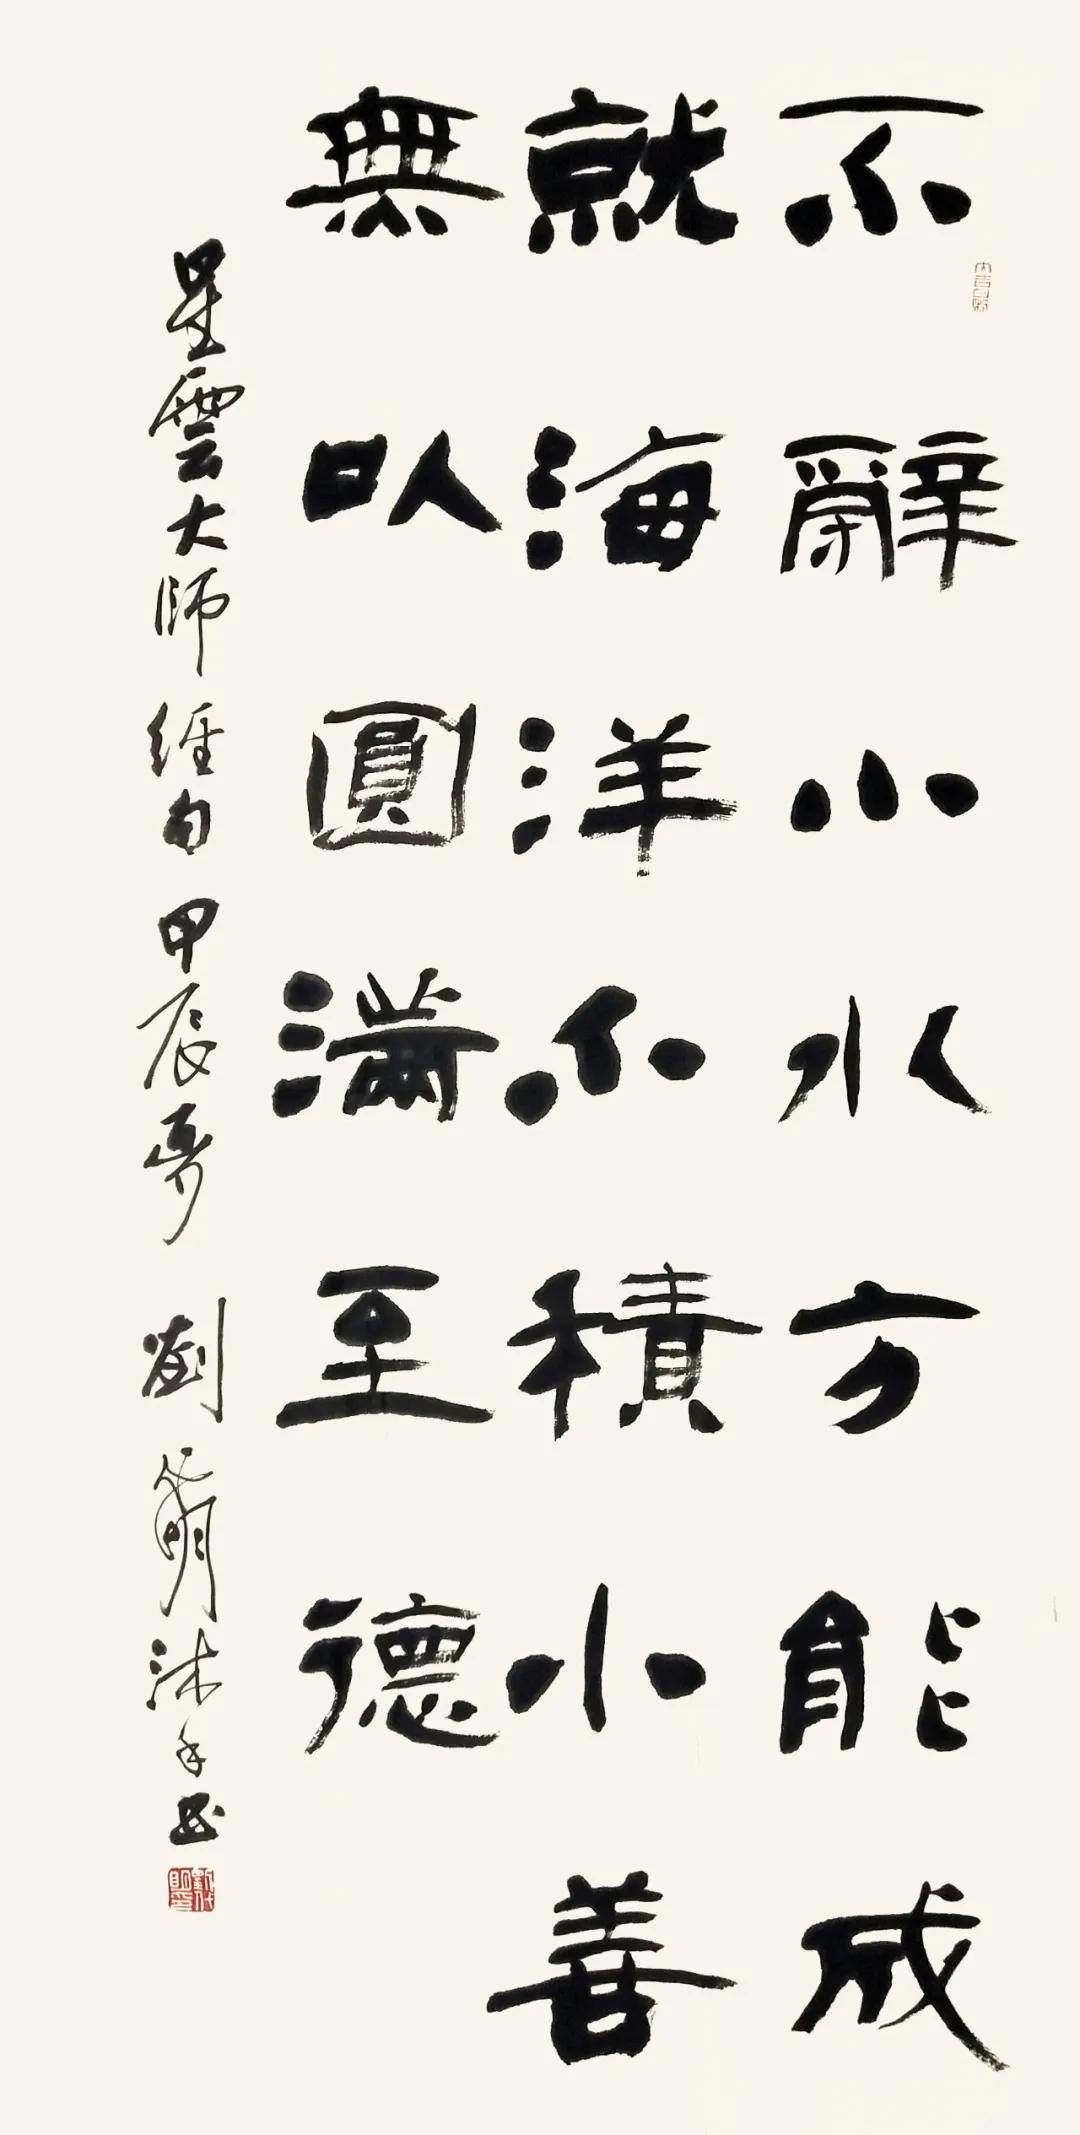 不辭小水方能成
就海洋不積小善
無以圓滿至德
星雲大師經句甲辰夏劉明沐手書